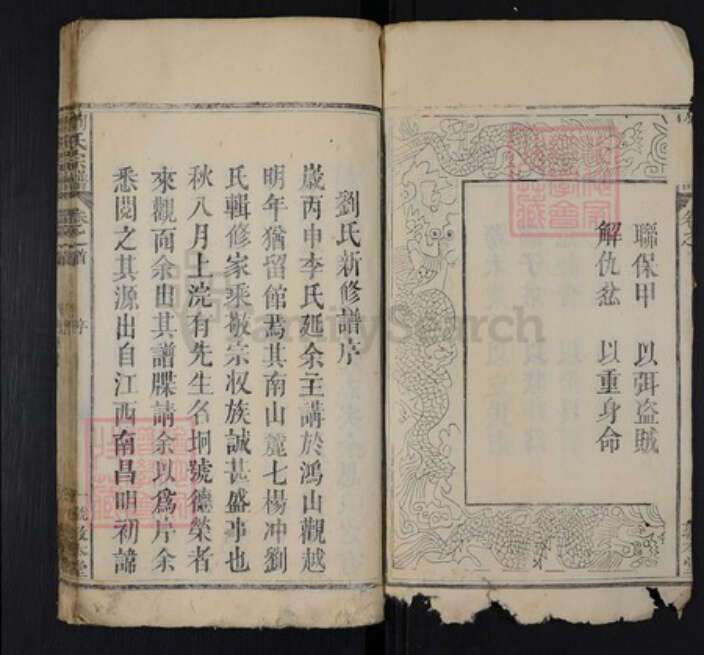 聯保甲 以弭盜賊
解仇忿 以重身命
劉氏新修譜序
歲丙申李氏延余主講於鴻山觀越
明年猶留館焉其南山麓七楊冲劉
氏輯修家乘敬宗收族誠甚盛事也
秋八月上浣有先生名坰號德榮者
來觀面余出其譜牒請余以為序余
悉閱之其源出自江西南昌明初諱
劉氏宗譜
卷之首
序
敦本堂
FamilySearch